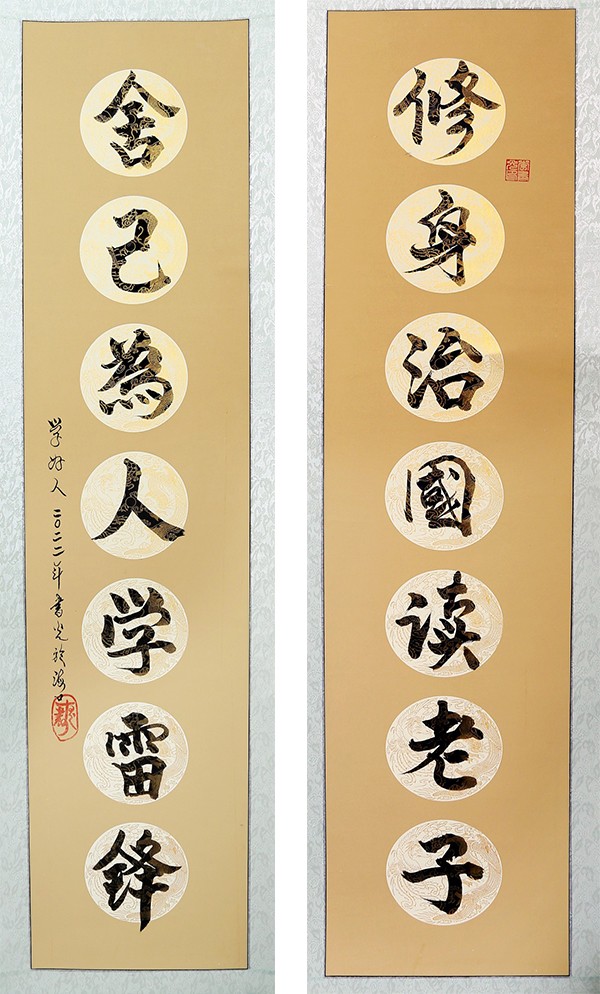 修身治國读老子
舍己為人学雷鋒
学好人 二〇二二年書光於海口